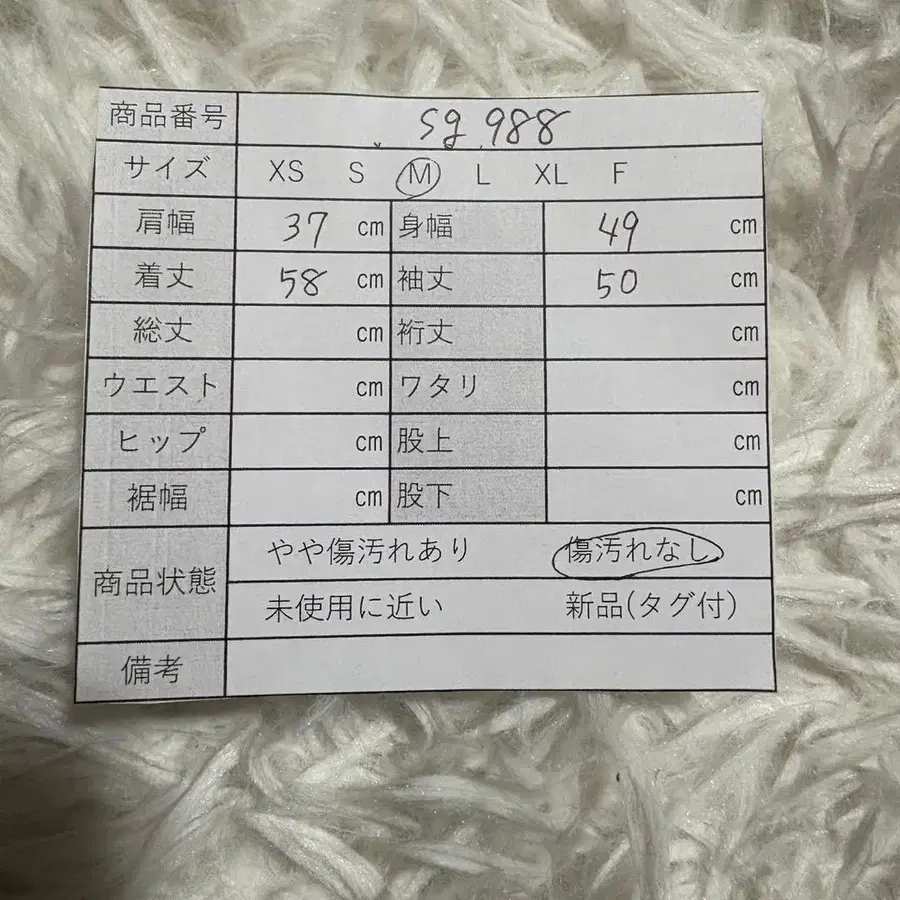 商品番号 sg 988
サイズ XS S M L XL F
肩幅 37 cm 身幅 49 cm
着丈 58 cm 袖丈 50 cm
総丈 cm 裄丈 cm
ウエスト cm ワタリ cm
ヒップ cm 股上 cm
裾幅 cm 股下 cm
商品状態 やや傷汚れあり 傷汚れなし
未使用に近い 新品(タグ付)
備考